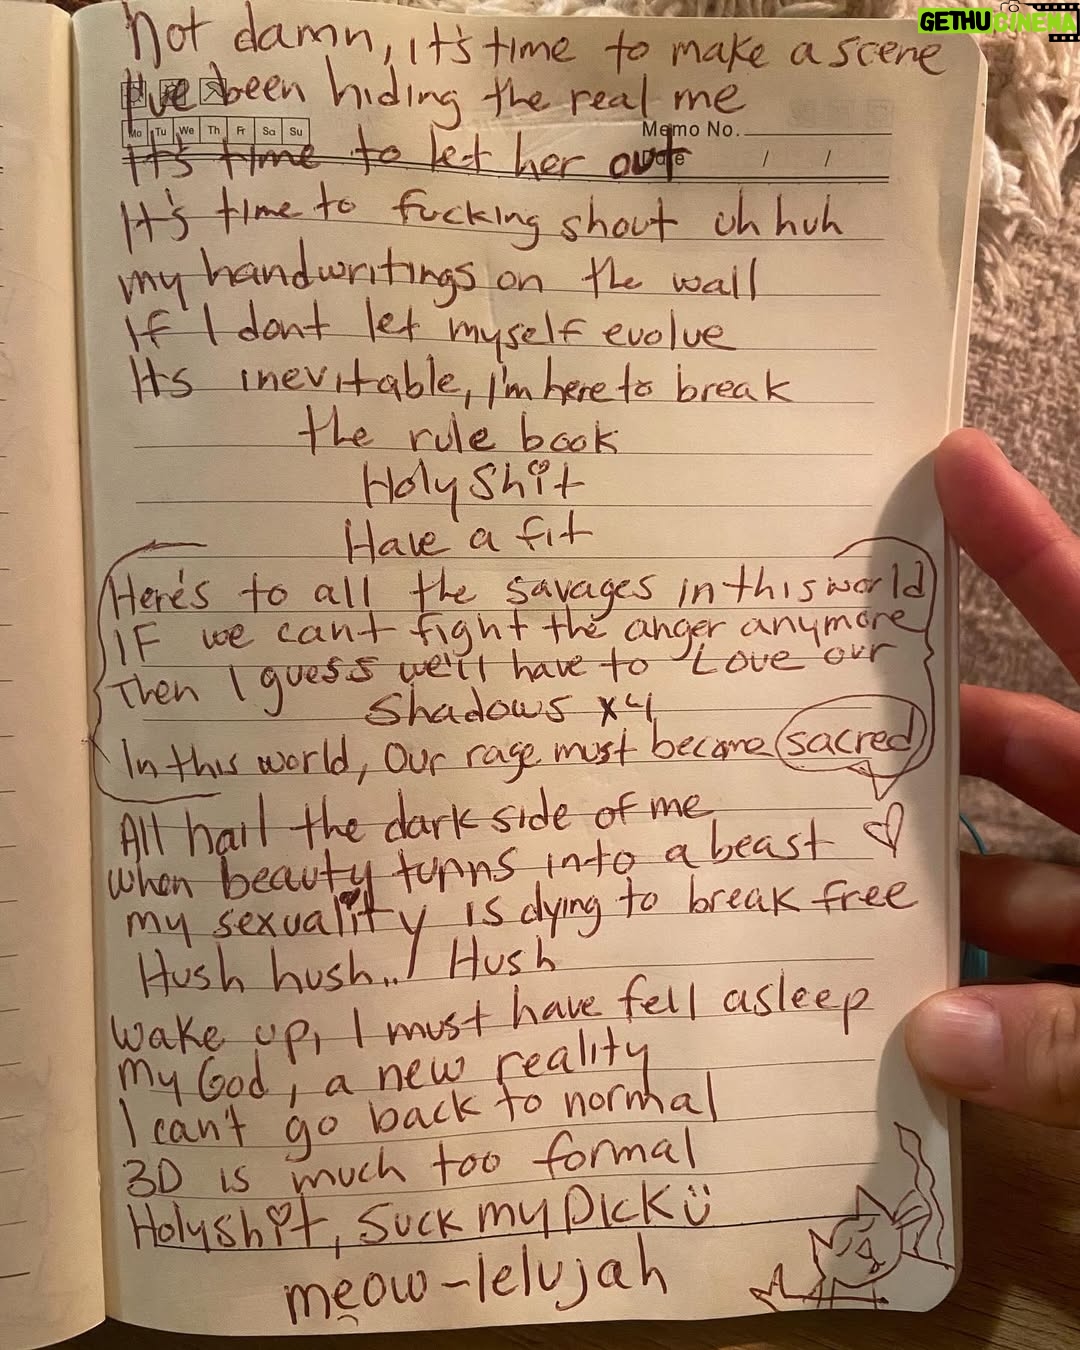 GETHU CINEMA
hot damn, it's time to make a scene
I've been hiding the real me
Mo Tu We Th Fr Sa Su
Memo No.
Date / /
It's time to let her out
It's time to fucking shout uh huh
my handwritings on the wall
If I dont let myself evolve
Its inevitable, I'm here to break
the rule book
Holy Shit
Have a fit
Here's to all the savages in this world
IF we cant fight the anger anymore
Then I guess we'll have to Love our
Shadows x4
In this world, Our rage must become sacred
All hail the dark side of me
when beauty turns into a beast
my sexuality is dying to break free
Hush hush..! Hush
Wake up, I must have fell asleep
My God, a new reality
I can't go back to normal
3D is much too formal
Holy shit, Suck my Dick ü
meow-lelujah